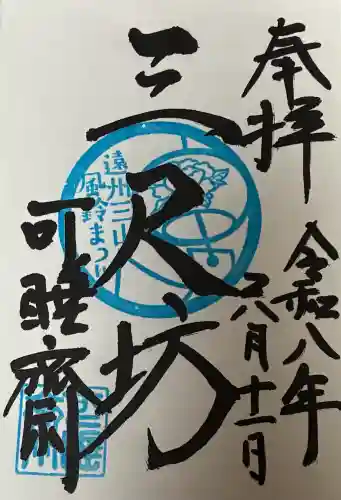 奉拝
令和八年
八月十一日
三尺坊
可睡斎
遠州三山
風鈴まつり